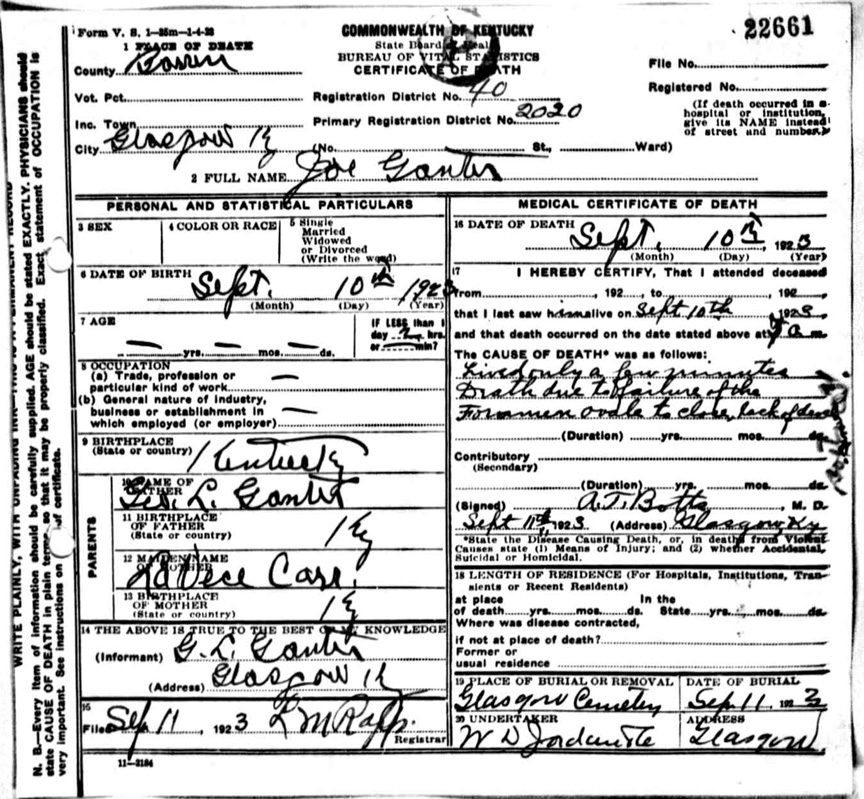 Form V. S. 1—25m—1-4-23
COMMONWEALTH OF KENTUCKY
22661
1 PLACE OF DEATH
State Board of Health
BUREAU OF VITAL STATISTICS
CERTIFICATE OF DEATH
County Barren
File No.
Registered No.
Vot. Pct.
Registration District No. 40
(If death occurred in a hospital or institution, give its NAME instead of street and number.)
Inc. Town
Primary Registration District No. 2020
City Glasgow Ky (No. St., Ward)
2 FULL NAME Joe Ganter
PERSONAL AND STATISTICAL PARTICULARS
3 SEX
4 COLOR OR RACE
5 Single
Married
Widowed
or Divorced
(Write the word)
6 DATE OF BIRTH
Sept. 10th 1923
(Month) (Day) (Year)
7 AGE
— yrs. — mos. — ds.
IF LESS than 1
day hrs.
or min?
8 OCCUPATION
(a) Trade, profession or
particular kind of work —
(b) General nature of industry,
business or establishment in
which employed (or employer) —
9 BIRTHPLACE
(State or country) Kentucky
PARENTS
10 NAME OF
FATHER
Geo. L. Ganter
11 BIRTHPLACE
OF FATHER
(State or country) Ky
12 MAIDEN NAME
OF MOTHER
13 BIRTHPLACE
OF MOTHER
(State or country) Ky
14 THE ABOVE IS TRUE TO THE BEST OF MY KNOWLEDGE
(Informant) G. L. Ganter
(Address) Glasgow Ky
15
Filed Sep 11 1923
Registrar
11—3184
MEDICAL CERTIFICATE OF DEATH
16 DATE OF DEATH
Sept. 10th, 1923
(Month) (Day) (Year)
17 I HEREBY CERTIFY, That I attended deceased
from , 192 to , 192
that I last saw him alive on Sept 10th 1923
and that death occurred on the date stated above at a m
The CAUSE OF DEATH* was as follows:
Lived only a few minutes
Death due to failure of the
Foramen ovale to close, lack of
(Duration) yrs. mos. ds.
Contributory
(Secondary)
(Duration) yrs. mos. ds.
(Signed) A. T. Botts, M. D.
Sept 11th, 1923 (Address) Glasgow Ky
*State the Disease Causing Death, or, in deaths from Violent
Causes state (1) Means of Injury; and (2) whether Accidental,
Suicidal or Homicidal.
18 LENGTH OF RESIDENCE (For Hospitals, Institutions, Tran-
sients or Recent Residents)
at place In the
of death yrs. mos. ds. State yrs. mos. ds.
Where was disease contracted,
if not at place of death?
Former or
usual residence
19 PLACE OF BURIAL OR REMOVAL
DATE OF BURIAL
Glasgow Cemetery
Sep. 11. 1923
20 UNDERTAKER
ADDRESS
W D
Glasgow
WRITE PLAINLY, WITH UNFADING INK—THIS IS A PERMANENT RECORD
N. B.—Every item of information should be carefully supplied. AGE should be stated EXACTLY. PHYSICIANS should
state CAUSE OF DEATH in plain terms, so that it may be properly classified. Exact statement of OCCUPATION is
very important. See instructions on of certificate.